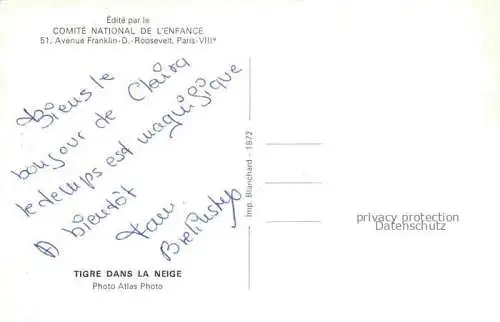 Édité par le
COMITÉ NATIONAL DE L'ENFANCE
51, Avenue Franklin-D.-Roosevelt, Paris-VIIIᵉ
le
bonjour de Claira
le temps est magnifique
A bientôt
Fam.
TIGRE DANS LA NEIGE
Photo Atlas Photo
Imp. Blanchard - 1872
privacy protection
Datenschutz